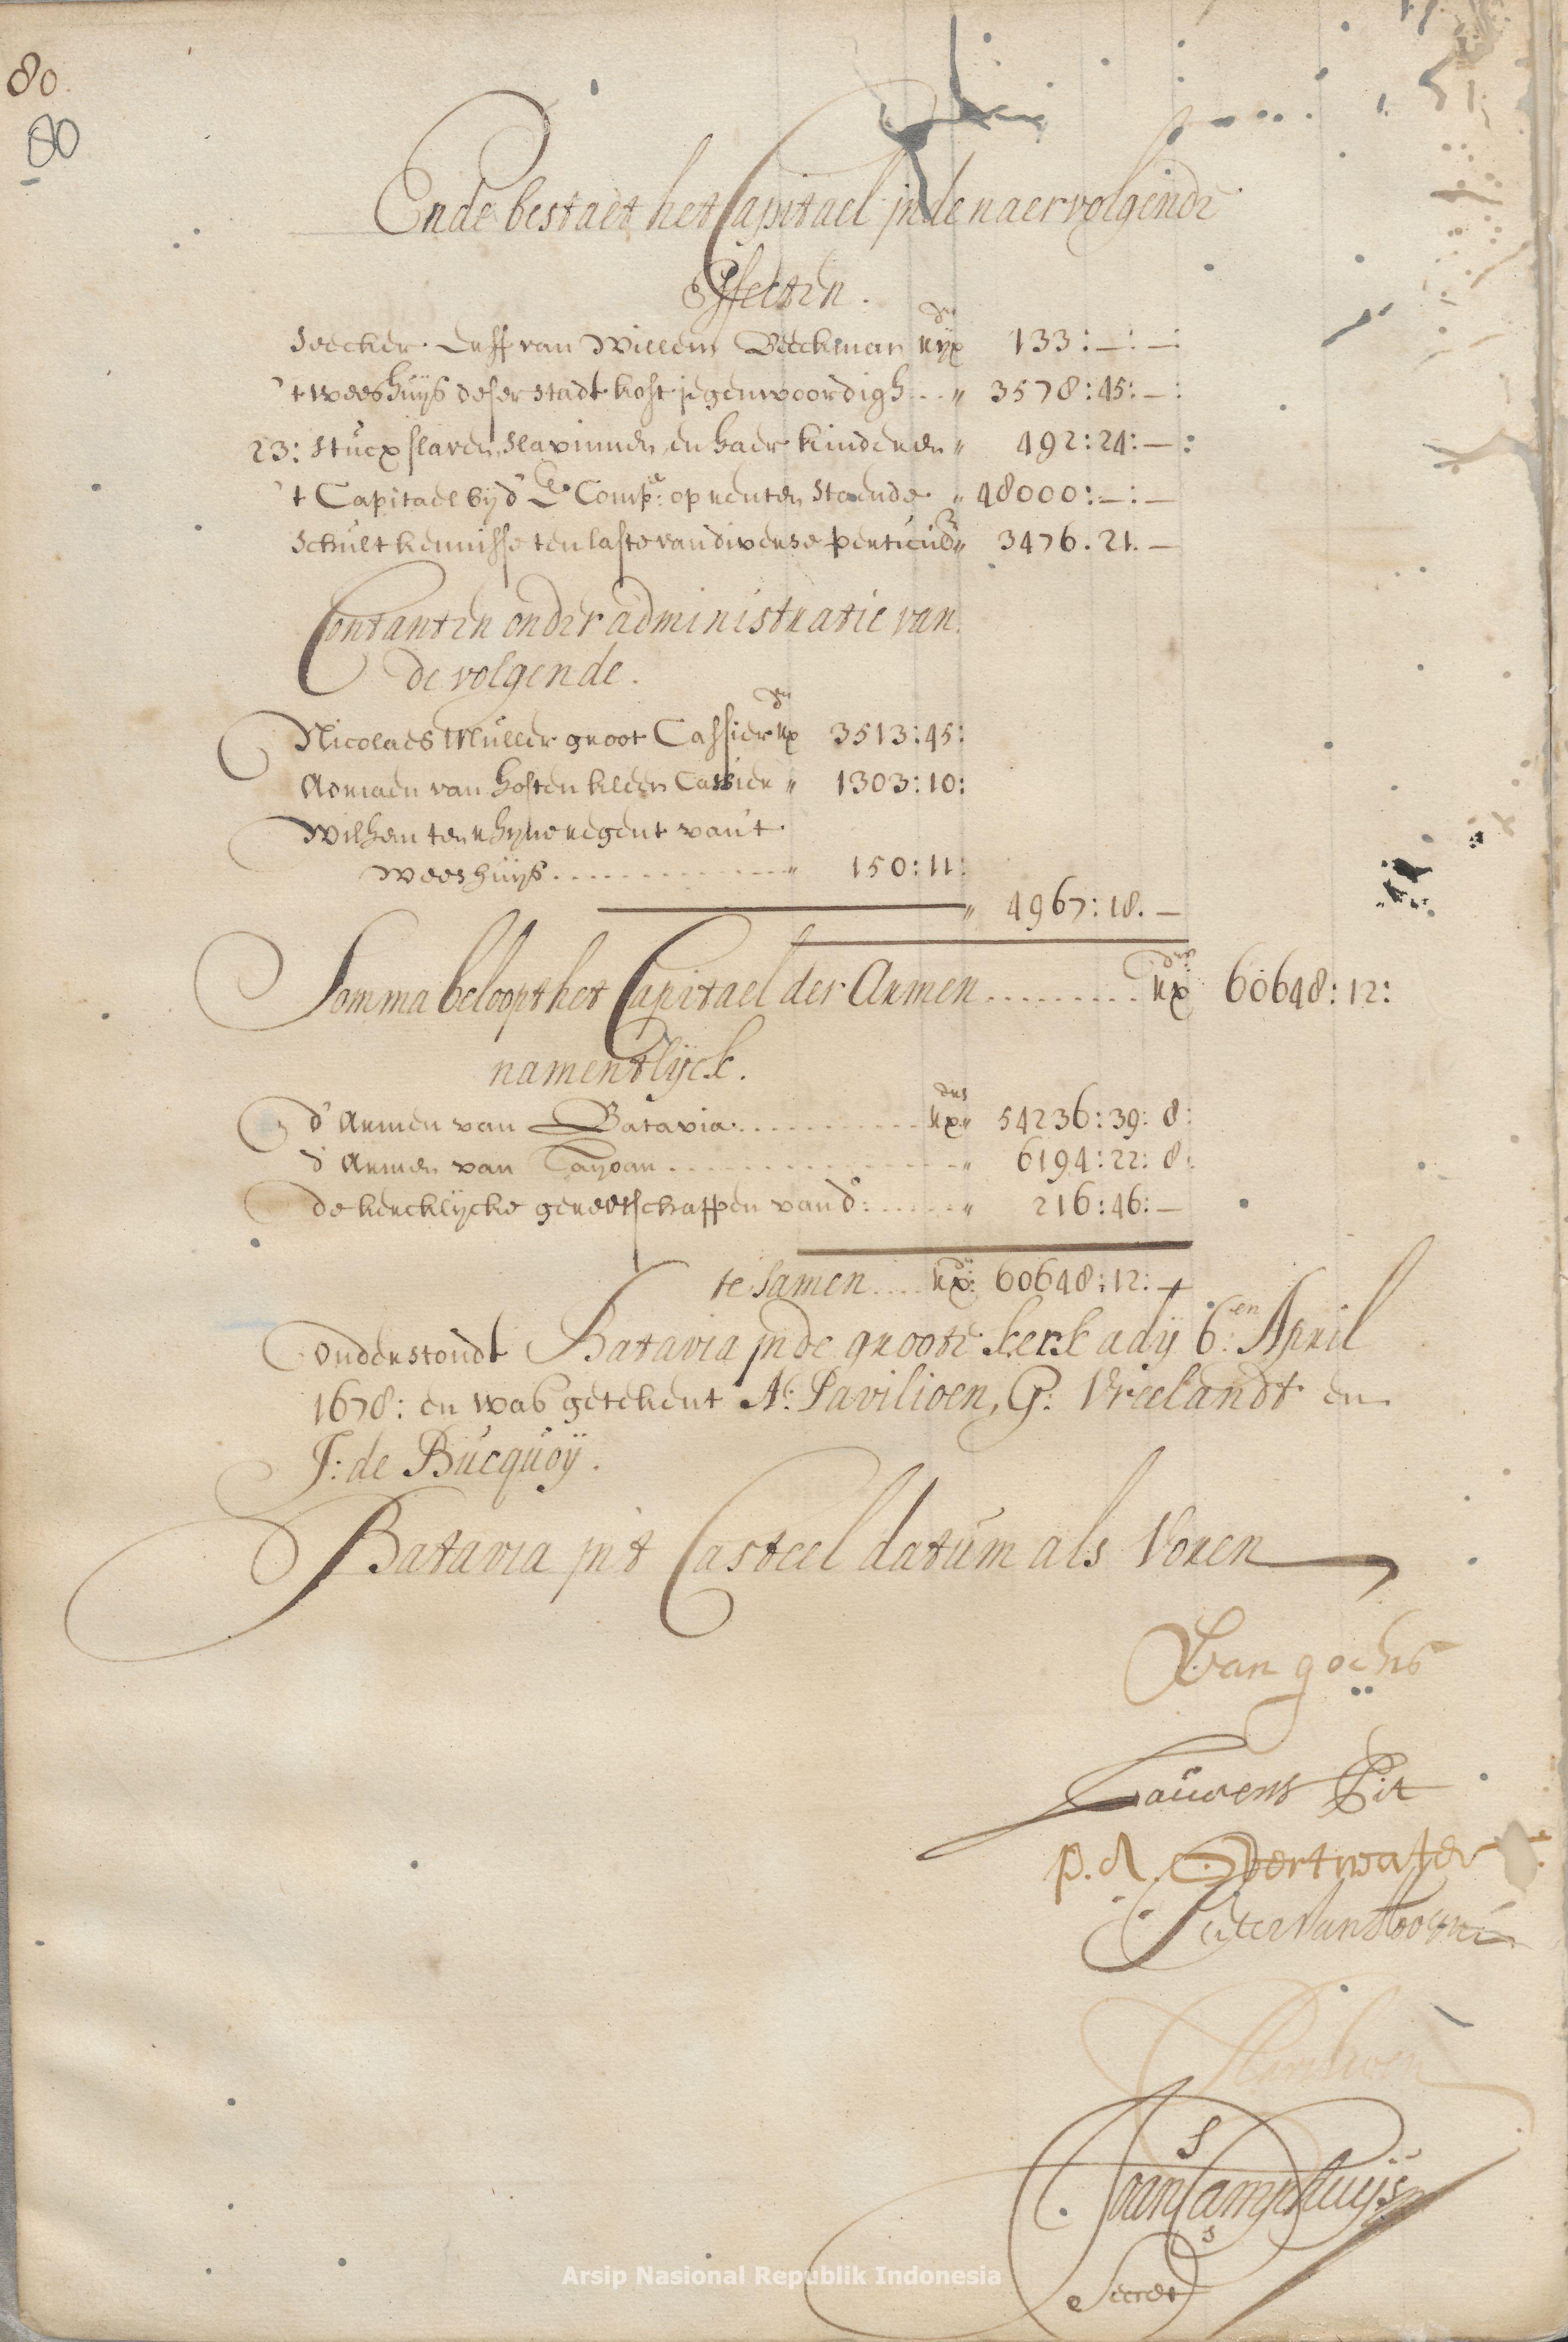 80.
80
Ende bestaet het Capitael in de naervolgende
Effecten.
Seecker Erff van Willem Beeckman Rijx drs 133:—:—:
't weeshuijs deser stadt kost jegenwoordigh .. „ 3578:45:—:
23: stucx slaven, slavinnen, en haer kinderen „ 492:24:—:
't Capitael bij d' E. Compe: op renten staende „ 48000:—:—
Schult kennisse ten laste van diverse perticulre „ 3476.21.—
Contanten onder administratie van
de volgende.
Nicolaes Muller groot Cassier Rx drs 3513:45:
Adriaen van hosten kleen Cassier „ 1303:10:
Wilhem ten Rhyne regent van 't
weeshuijs .............. „ 150:11:
„ 4967:18.—
Somma beloopt het Capitael der Armen ......... Rx drs 60648:12:
namentlijck.
d' Armen van Batavia ........... Rx drs „ 54236:39:8:
d' Armen van Tayoan .............. „ 6194:22:8:
de kercklijcke gereetschappen van do: ...... „ 216:46:—
te samen .... Rx drs: 60648:12:—
onderstondt Batavia in de groote kerk ady 6:en April
1678: en was getekent A: Pavilioen, G: Vreelandt en
J: de Bucquoij.
Batavia in 't Casteel datum als Voren
Van goens
Lauwens Pit
p. A. Overtwater
Pieter Van Hoorn
Joan Camphuijs
Secret
Arsip Nasional Republik Indonesia